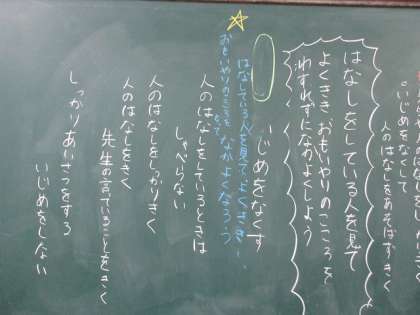 いじめをなくして
人のはなしをあそばずきく
はなしをしている人を見て
よくきき、おもいやりのこころを
わすれずになかよくしよう
いじめをなくす
はなしている人を見てよくきき、
おもいやりのこころをもってなかよくなろう
人のはなしをしているときは
しゃべらない
人のはなしをしっかりきく
人のはなしをきく
先生の言っていることをきく
しっかりあいさつをする
いじめをしない